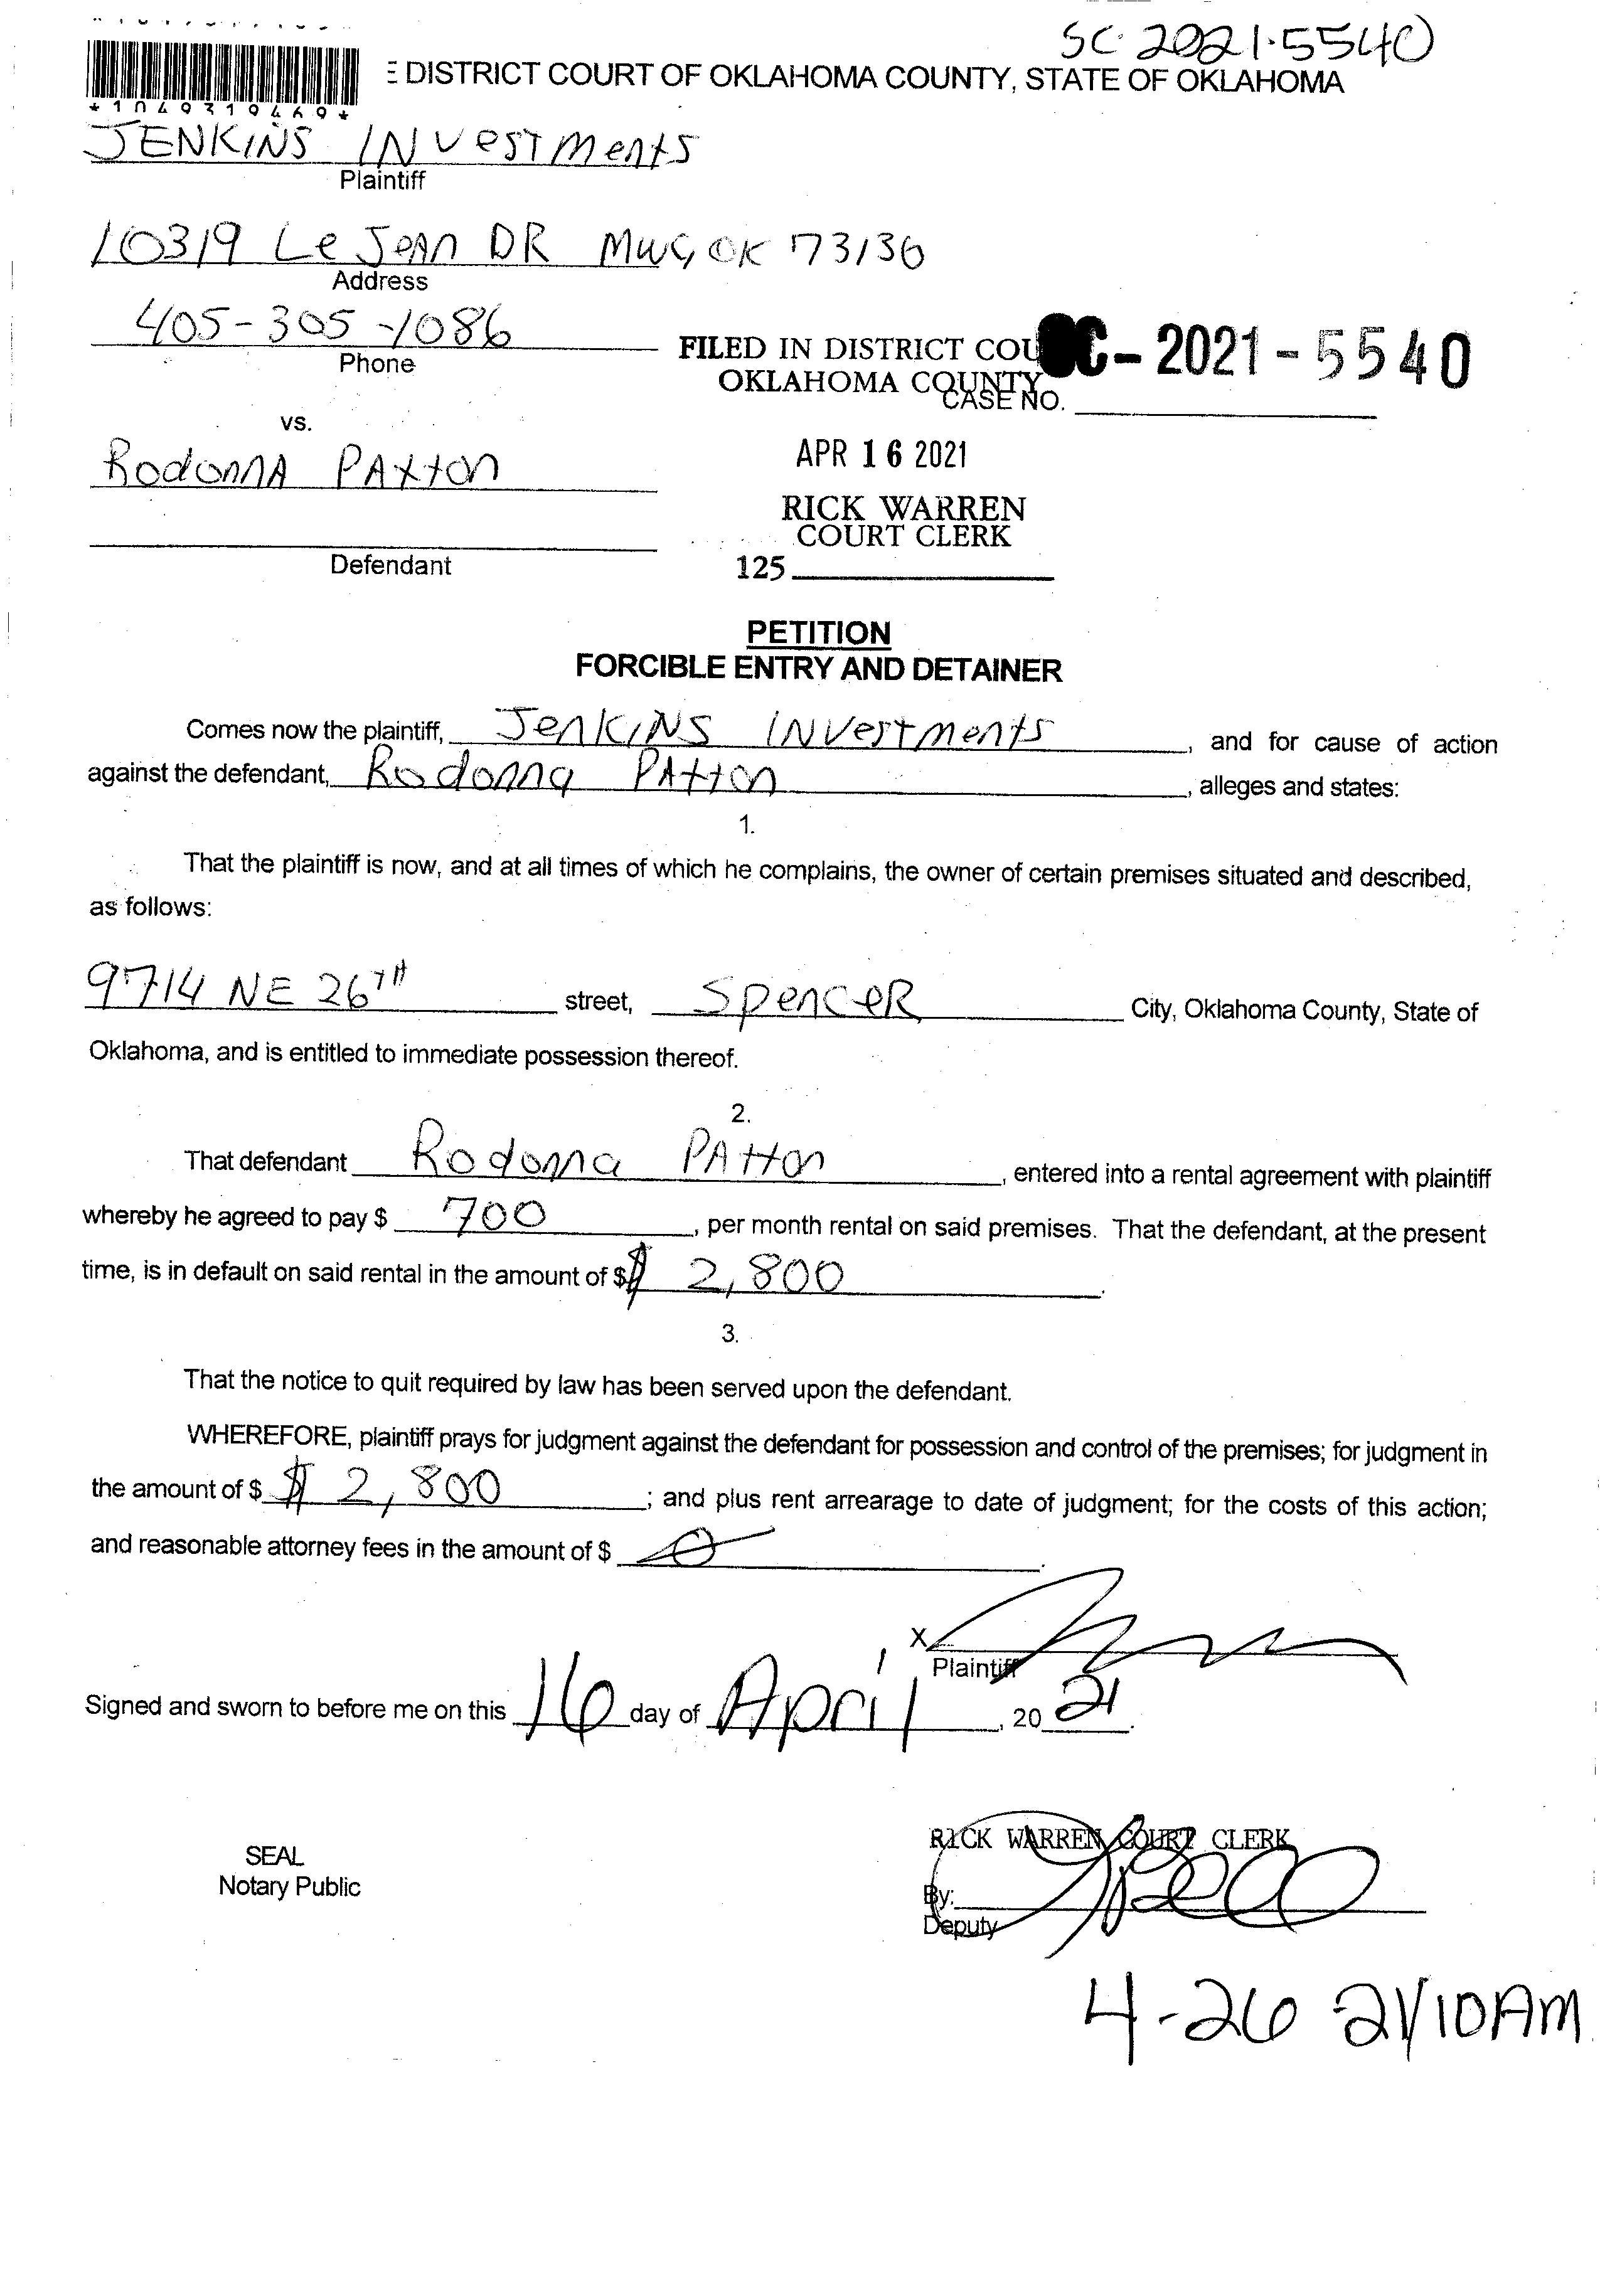 SC-2021-5540
E DISTRICT COURT OF OKLAHOMA COUNTY, STATE OF OKLAHOMA
*1049319469*
JENKINS INVESTMENTS
Plaintiff
10319 Le Jean DR MWC, OK 73130
Address
405-305-1086
Phone
FILED IN DISTRICT COU
SC-2021-5540
OKLAHOMA COUNTY
CASE NO.
vs.
APR 16 2021
Rodonna PAxton
RICK WARREN
COURT CLERK
Defendant
125
PETITION
FORCIBLE ENTRY AND DETAINER
Comes now the plaintiff, Jenkins Investments, and for cause of action
against the defendant, Rodonna PAtton, alleges and states:
1.
That the plaintiff is now, and at all times of which he complains, the owner of certain premises situated and described,
as follows:
9714 NE 26TH street, Spencer City, Oklahoma County, State of
Oklahoma, and is entitled to immediate possession thereof.
2.
That defendant Rodonna PAtton, entered into a rental agreement with plaintiff
whereby he agreed to pay $ 700, per month rental on said premises. That the defendant, at the present
time, is in default on said rental in the amount of $ $ 2,800.
3.
That the notice to quit required by law has been served upon the defendant.
WHEREFORE, plaintiff prays for judgment against the defendant for possession and control of the premises; for judgment in
the amount of $ $ 2,800; and plus rent arrearage to date of judgment; for the costs of this action;
and reasonable attorney fees in the amount of $ 0.
X
Plaintiff
Signed and sworn to before me on this 16 day of April, 2021.
RICK WARREN COURT CLERK
SEAL
Notary Public
By:
Deputy
4-26 21/10AM